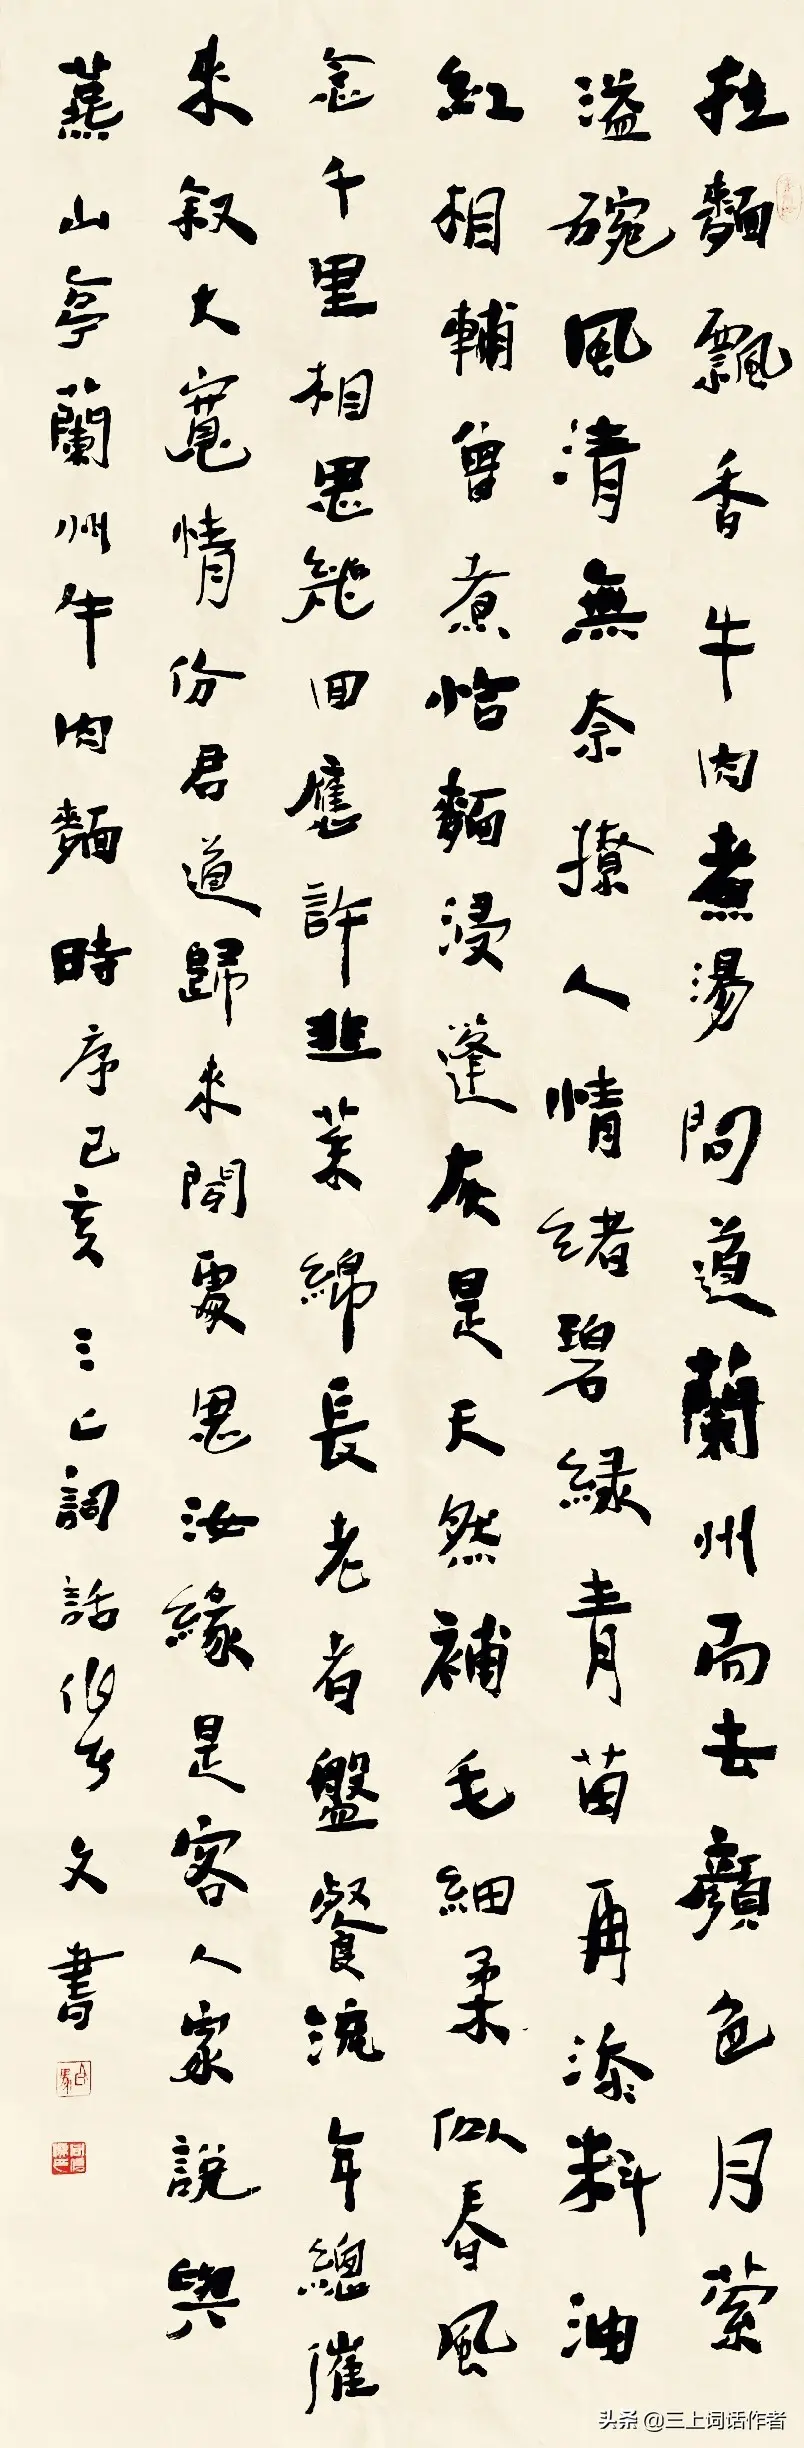 拉麵飄香牛肉煮湯問道蘭州而去顏色月縈
溢碗風清無奈撩人情緒碧綠青苗再添料油
紅相輔曾煮恰麵浸蓬灰是天然補毛細柔似春風
念千里相思能回應許韭葉綿長老者盤餐流年總催
來叙大寬情份君道歸來閒處思汝緣是客人家說與
燕山亭蘭州牛肉麵時序己亥三上詞話作者文書
头条 @三上词话作者